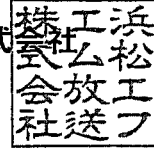 浜松エフ
エム放送
株式会社
社